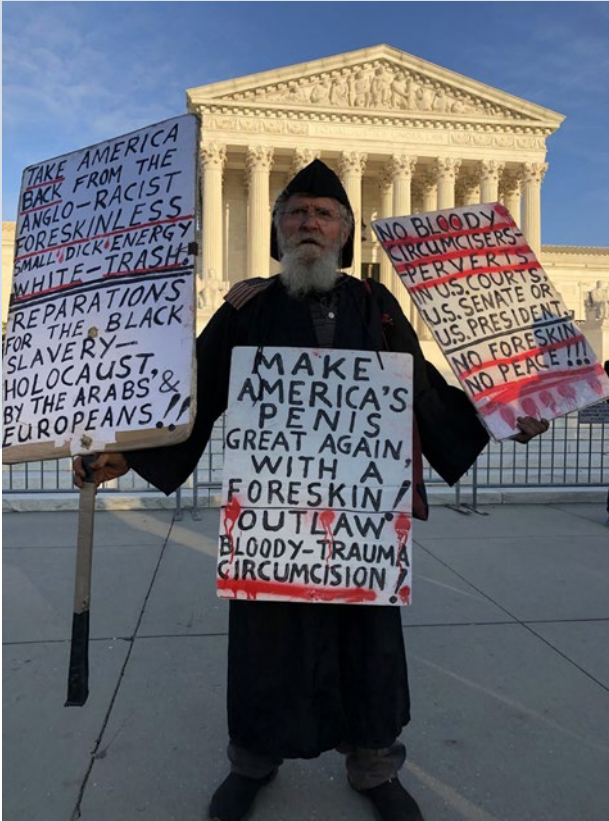 TAKE AMERICA
BACK FROM THE
ANGLO-RACIST
FORESKINLESS
SMALL "DICK" ENERGY
WHITE-TRASH!
REPARATIONS
FOR THE BLACK
SLAVERY-
HOLOCAUST,
BY THE ARABS' &
EUROPEANS!!
MAKE
AMERICA'S
PENIS
GREAT AGAIN,
WITH A
FORESKIN!
OUTLAW
BLOODY-TRAUMA
CIRCUMCISION!
NO BLOODY
CIRCUMCISERS-
PERVERTS
IN U.S. COURTS,
U.S. SENATE OR
U.S. PRESIDENT.
NO FORESKIN
NO PEACE!!!